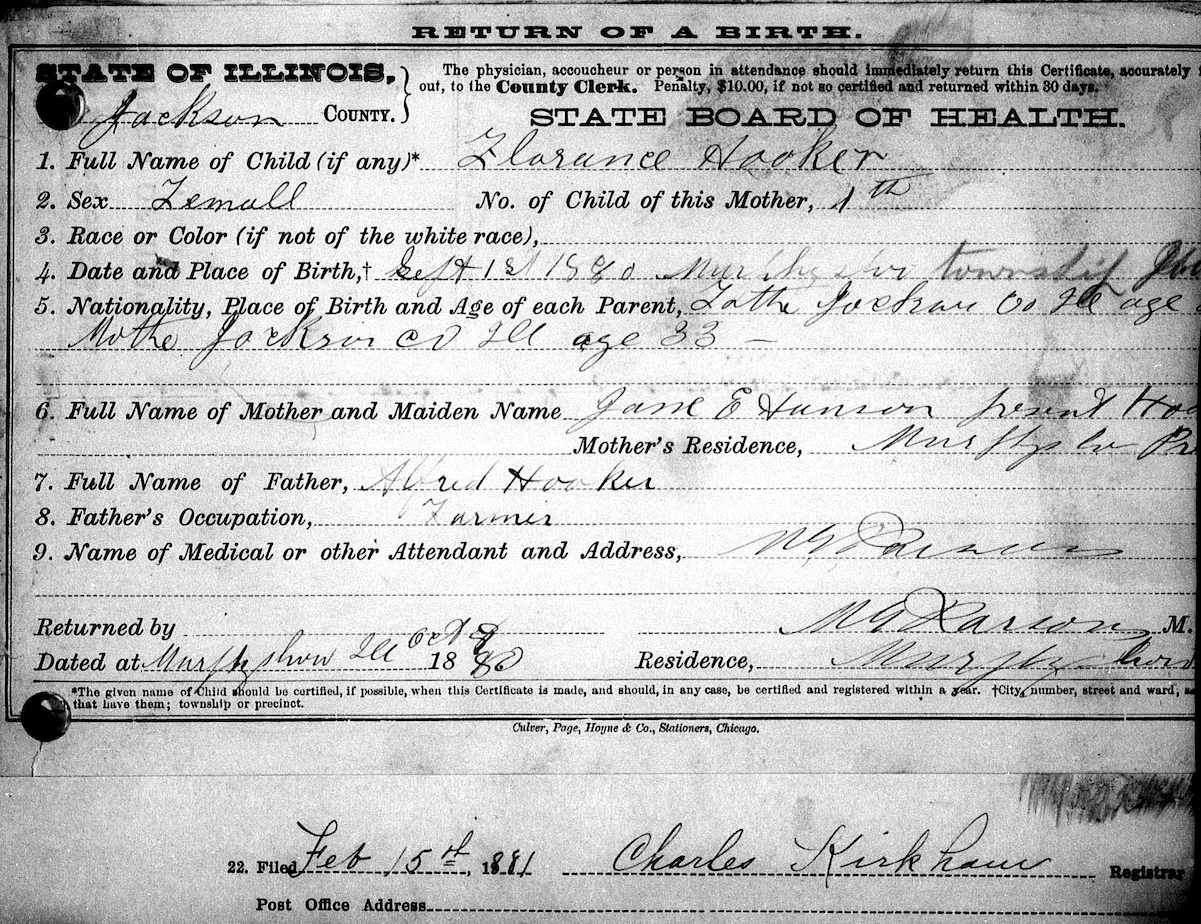 RETURN OF A BIRTH.
STATE OF ILLINOIS,
Jackson COUNTY.
The physician, accoucheur or person in attendance should immediately return this Certificate, accurately
out, to the County Clerk. Penalty, $10.00, if not so certified and returned within 30 days.
STATE BOARD OF HEALTH.
1. Full Name of Child (if any)* Florance Hooker
2. Sex Femall No. of Child of this Mother, 1th
3. Race or Color (if not of the white race),
4. Date and Place of Birth,† Sept 1st 1880 Murphysboro township
5. Nationality, Place of Birth and Age of each Parent, Fathe Jackson Co Ill age
Mothe Jackson Co Ill age 33 –
6. Full Name of Mother and Maiden Name Jane E Hanson
Mother's Residence, Murphysboro
7. Full Name of Father, Alfred Hooker
8. Father's Occupation, Farmer
9. Name of Medical or other Attendant and Address,
Returned by M.
Dated at Murphysboro Ill Oct 1880 Residence, Murphysboro
*The given name of Child should be certified, if possible, when this Certificate is made, and should, in any case, be certified and registered within a year. †City, number, street and ward,
that have them; township or precinct.
Culver, Page, Hoyne & Co., Stationers, Chicago.
22. Filed Feb 15th, 1881 Charles Kirkham Registrar
Post Office Address